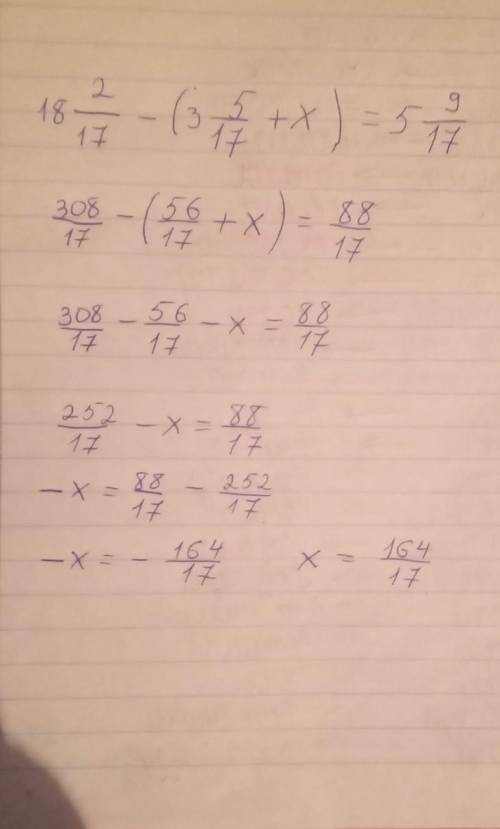 18 2/17 - (3 5/17 + x) = 5 9/17
308/17 - (56/17 + x) = 88/17
308/17 - 56/17 - x = 88/17
252/17 - x = 88/17
-x = 88/17 - 252/17
-x = - 164/17 x = 164/17